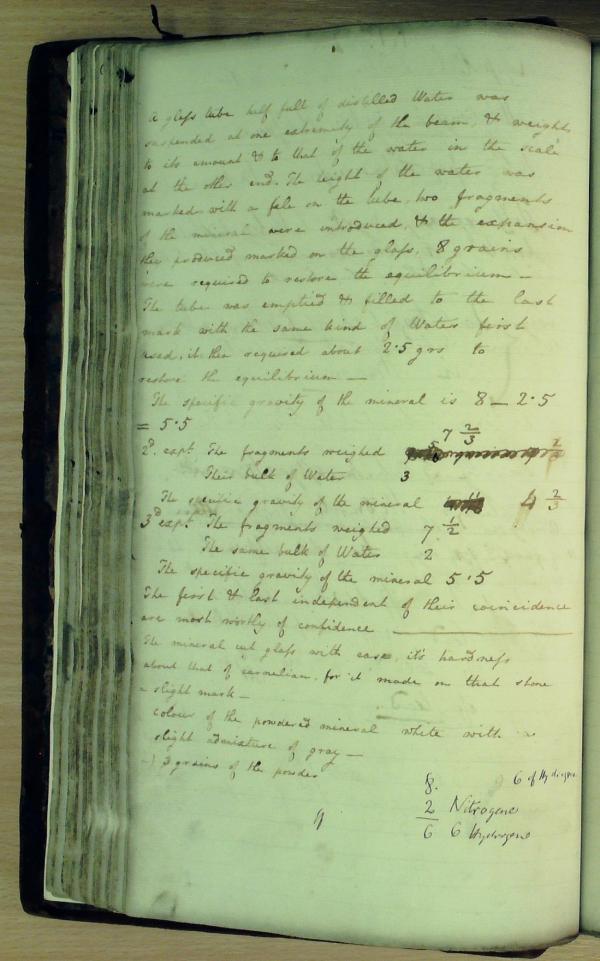 A glass tube half full of distilled Water was
suspended at one extremity of the beam, & weights
to its amount & to that of the water in the scale
at the other end. The height of the water was
marked with a file on the tube, two fragments
of the mineral were introduced, & the expansion
they produced marked on the glass, 8 grains
were required to restore the equilibrium –
The tube was emptied & filled to the last
mark with the same kind of Water first
used, it then required about 2.5 grs to
restore the equilibrium —
The specific gravity of the mineral is 8 – 2.5
= 5.5
7 2/3
2d expt. The fragments weighed
Their bulk of Water 3
The specific gravity of the mineral 4 2/3
3d expt. The fragments weighed 7 1/2
The same bulk of Water 2
The specific gravity of the mineral 5.5
The first & last independent of their coincidence
are most worthy of confidence —
The mineral cut glass with ease, it's hardness
about that of carnelian, for it made on that stone
a slight mark –
colour of the powdered mineral white with a
slight admixture of gray —
3 grains of the powder
8. 6 of Hydrogen
2 Nitrogene
6 6 Hydrogene